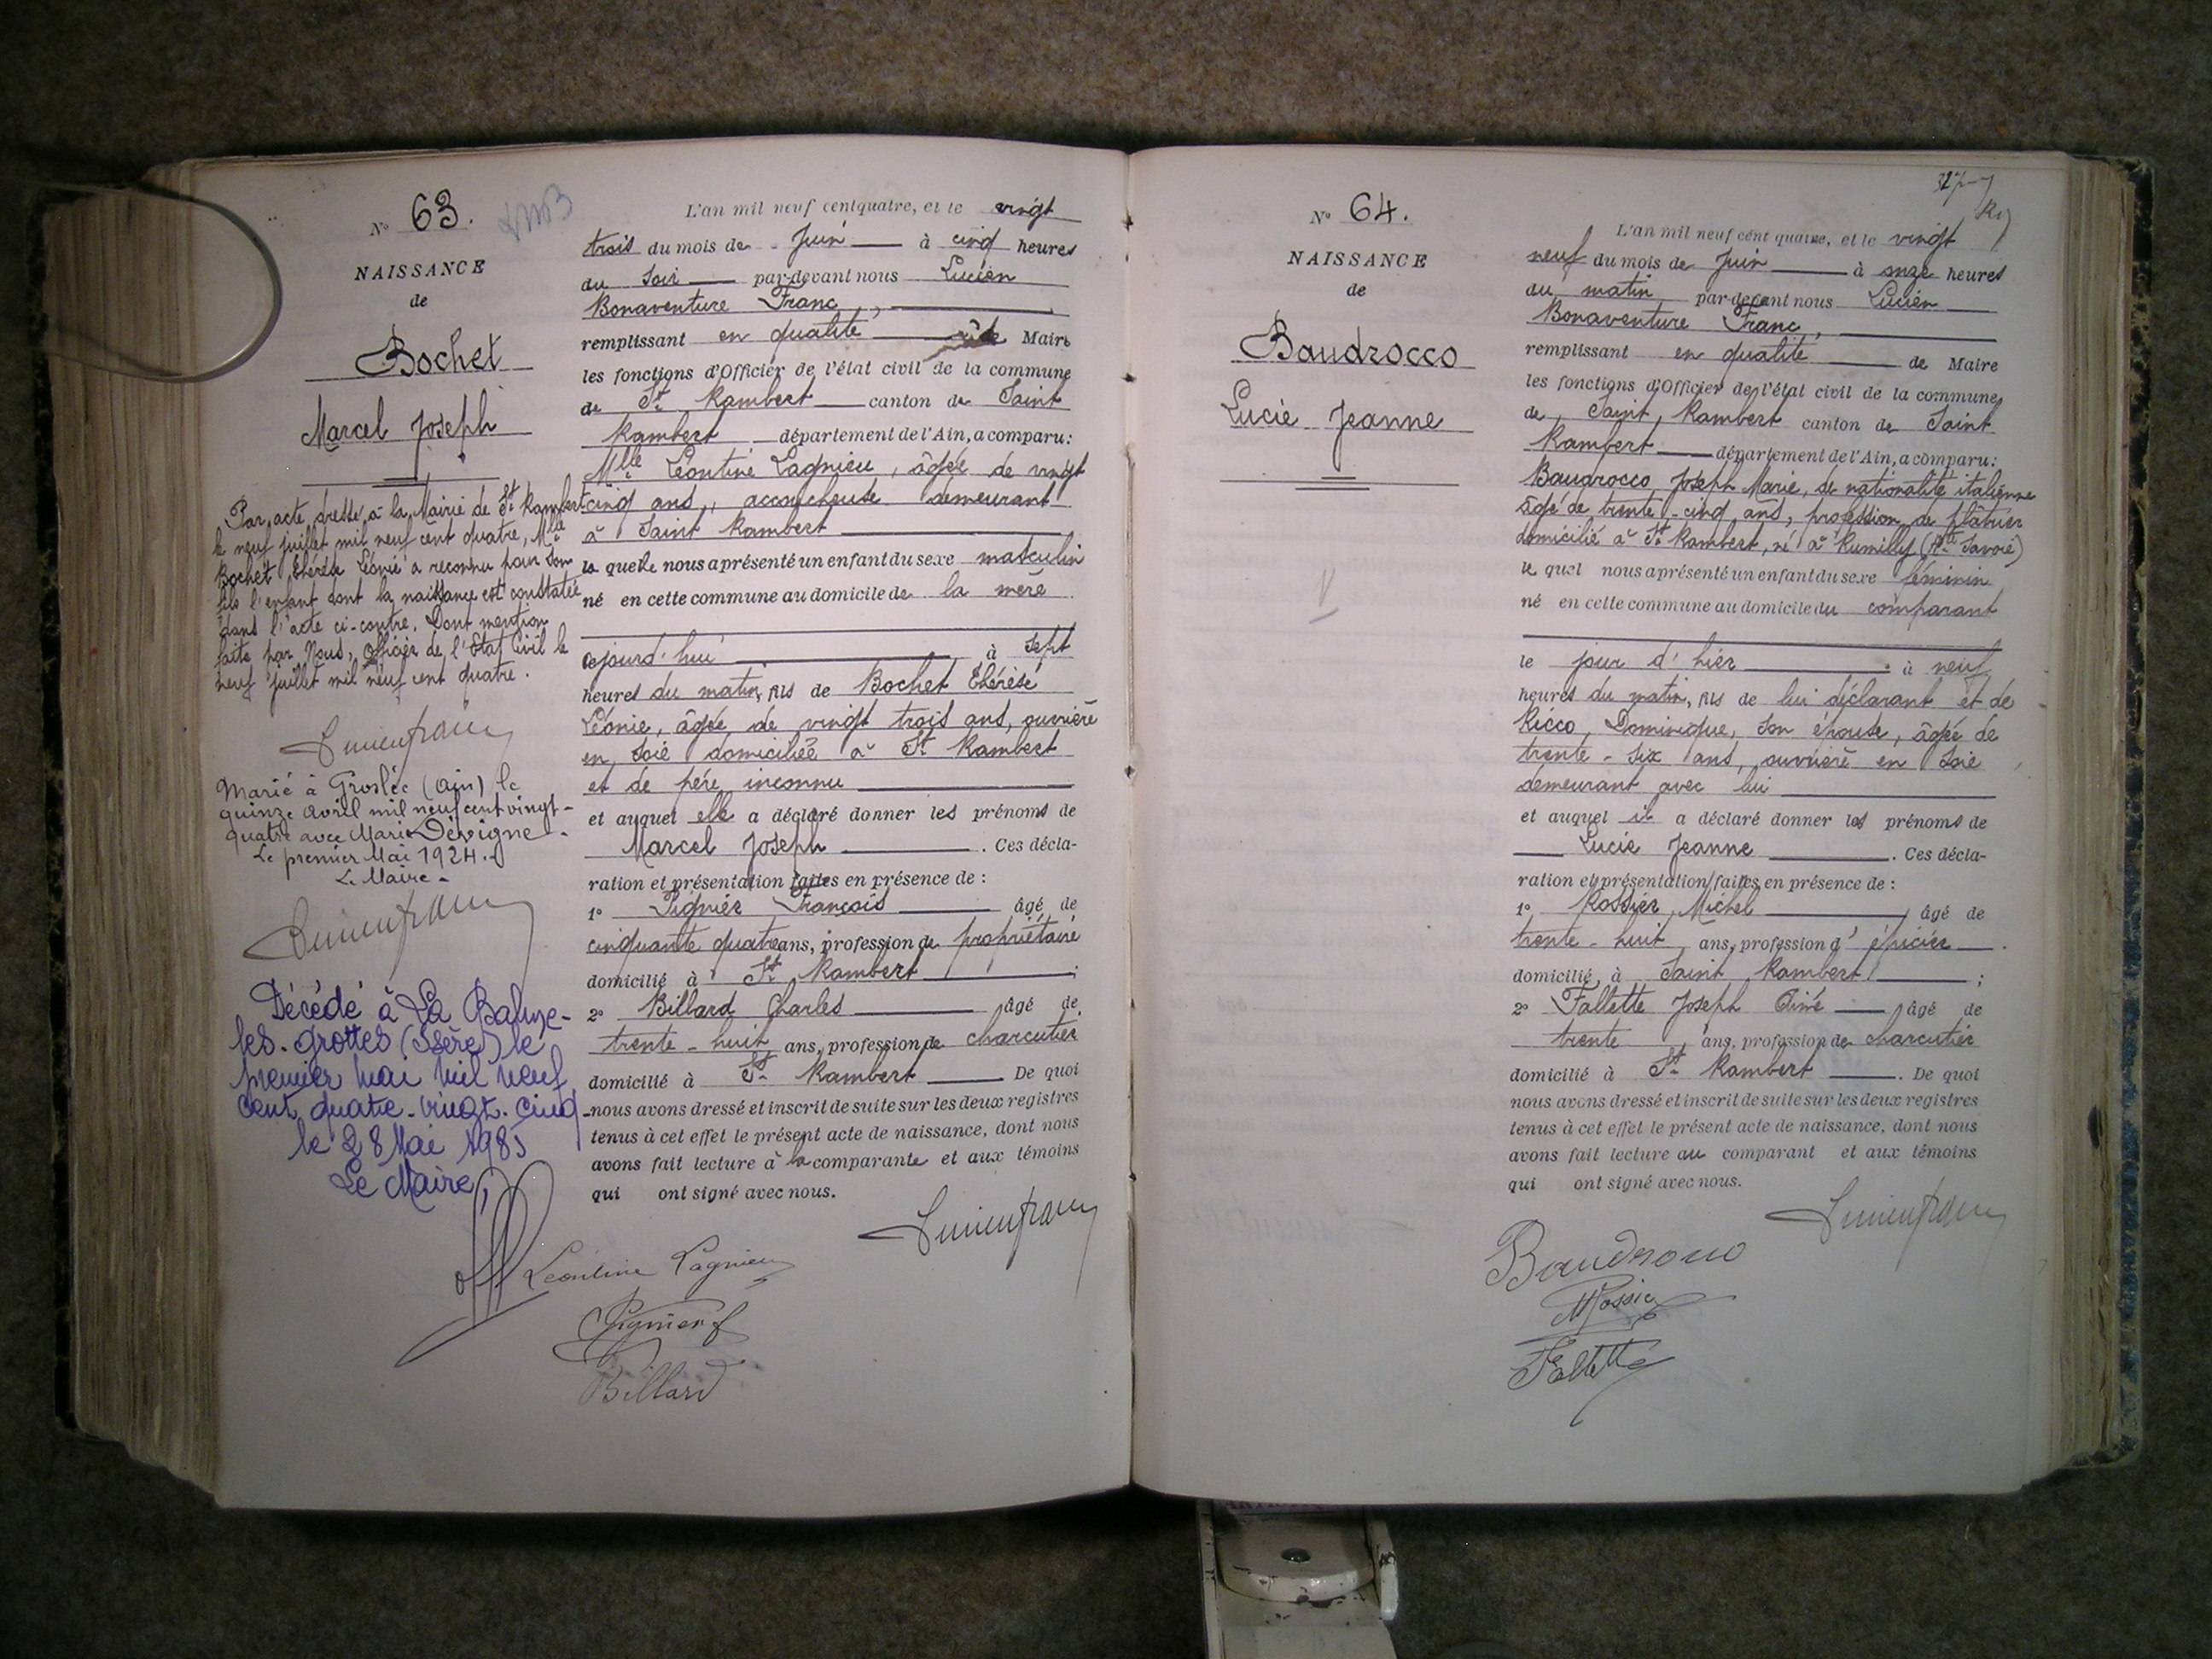 N° 63.
NAISSANCE
de
Bochet
Marcel Joseph
Par acte dressé à la Mairie de St Rambert
le neuf juillet mil neuf cent quatre, Mlle
Bochet Thérèse Léonie a reconnu pour son
fils l'enfant dont la naissance est constatée
dans l'acte ci-contre. Dont mention
faite par Nous, officier de l'Etat Civil le
neuf juillet mil neuf cent quatre.
Lucien franc
Marié à Groslée (Ain) le
quinze avril mil neuf cent vingt-
quatre avec Marie Dévigne.
Le premier Mai 1924.
Le Maire
Lucien franc
Décédé à La Balme-
les-Grottes (Isère) le
premier mai mil neuf
cent quatre-vingt-cinq
le 28 Mai 1985
Le Maire,
L'an mil neuf cent quatre, et le vingt
trois du mois de Juin à cinq heures
du soir par-devant nous Lucien
Bonaventure Franc,
remplissant en qualité de Maire
les fonctions d'Officier de l'état civil de la commune
de St Rambert canton de Saint
Rambert département de l'Ain, a comparu:
Mlle Léontine Lagnieu, âgée de vingt
cinq ans, accoucheuse demeurant
à Saint Rambert
la quelle nous a présenté un enfant du sexe masculin
né en cette commune au domicile de la mère
cejourd'hui à sept
heures du matin, fils de Bochet Thérèse
Léonie, âgée de vingt trois ans, ouvrière
en soie domiciliée à St Rambert
et de père inconnu
et auquel elle a déclaré donner les prénoms de
Marcel Joseph. Ces décla-
ration et présentation faites en présence de :
1° Pignier François âgé de
cinquante quatre ans, profession de propriétaire
domicilié à St Rambert ;
2° Billard Charles âgé de
trente-huit ans, profession de charcutier
domicilié à St Rambert De quoi
nous avons dressé et inscrit de suite sur les deux registres
tenus à cet effet le présent acte de naissance, dont nous
avons fait lecture à la comparante et aux témoins
qui ont signé avec nous.
Lucien franc
Léontine Lagnieu
Pignier f
Billard
N° 64.
NAISSANCE
de
Baudrocco
Lucie Jeanne
L'an mil neuf cent quatre, et le vingt
neuf du mois de Juin à onze heures
du matin par-devant nous Lucien
Bonaventure Franc,
remplissant en qualité de Maire
les fonctions d'Officier de l'état civil de la commune
de Saint Rambert canton de Saint
Rambert département de l'Ain, a comparu:
Baudrocco Joseph Marie, de nationalité italienne
âgé de trente-cinq ans, profession de plâtrier
domicilié à St Rambert, né à Rumilly (Hte Savoie)
le quel nous a présenté un enfant du sexe féminin
né en cette commune au domicile du comparant
le jour d'hier à neuf
heures du matin, fils de lui déclarant et de
Ricco, Dominique, son épouse, âgée de
trente-six ans, ouvrière en soie
demeurant avec lui
et auquel il a déclaré donner les prénoms de
Lucie Jeanne. Ces décla-
ration et présentation faites en présence de :
1° Rossier Michel âgé de
trente-huit ans, profession d'épicier.
domicilié à Saint Rambert ;
2° Fallette Joseph Aimé âgé de
trente ans, profession de charcutier
domicilié à St Rambert. De quoi
nous avons dressé et inscrit de suite sur les deux registres
tenus à cet effet le présent acte de naissance, dont nous
avons fait lecture au comparant et aux témoins
qui ont signé avec nous.
Lucien franc
Baudrocco
MRossier
Fallette